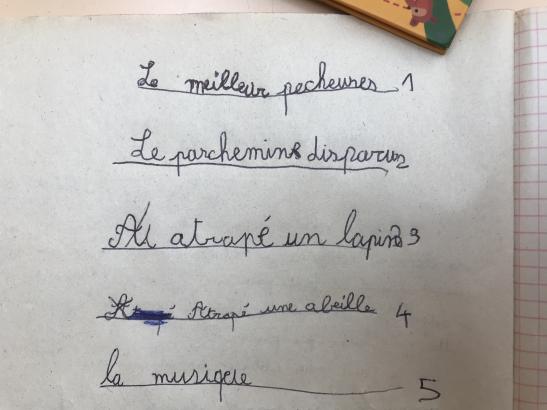 Le meilleur pecheuses 1
Le parchemins disparu 2
Al atrapé un lapin 3
Atrapé une abeille 4
la musique 5